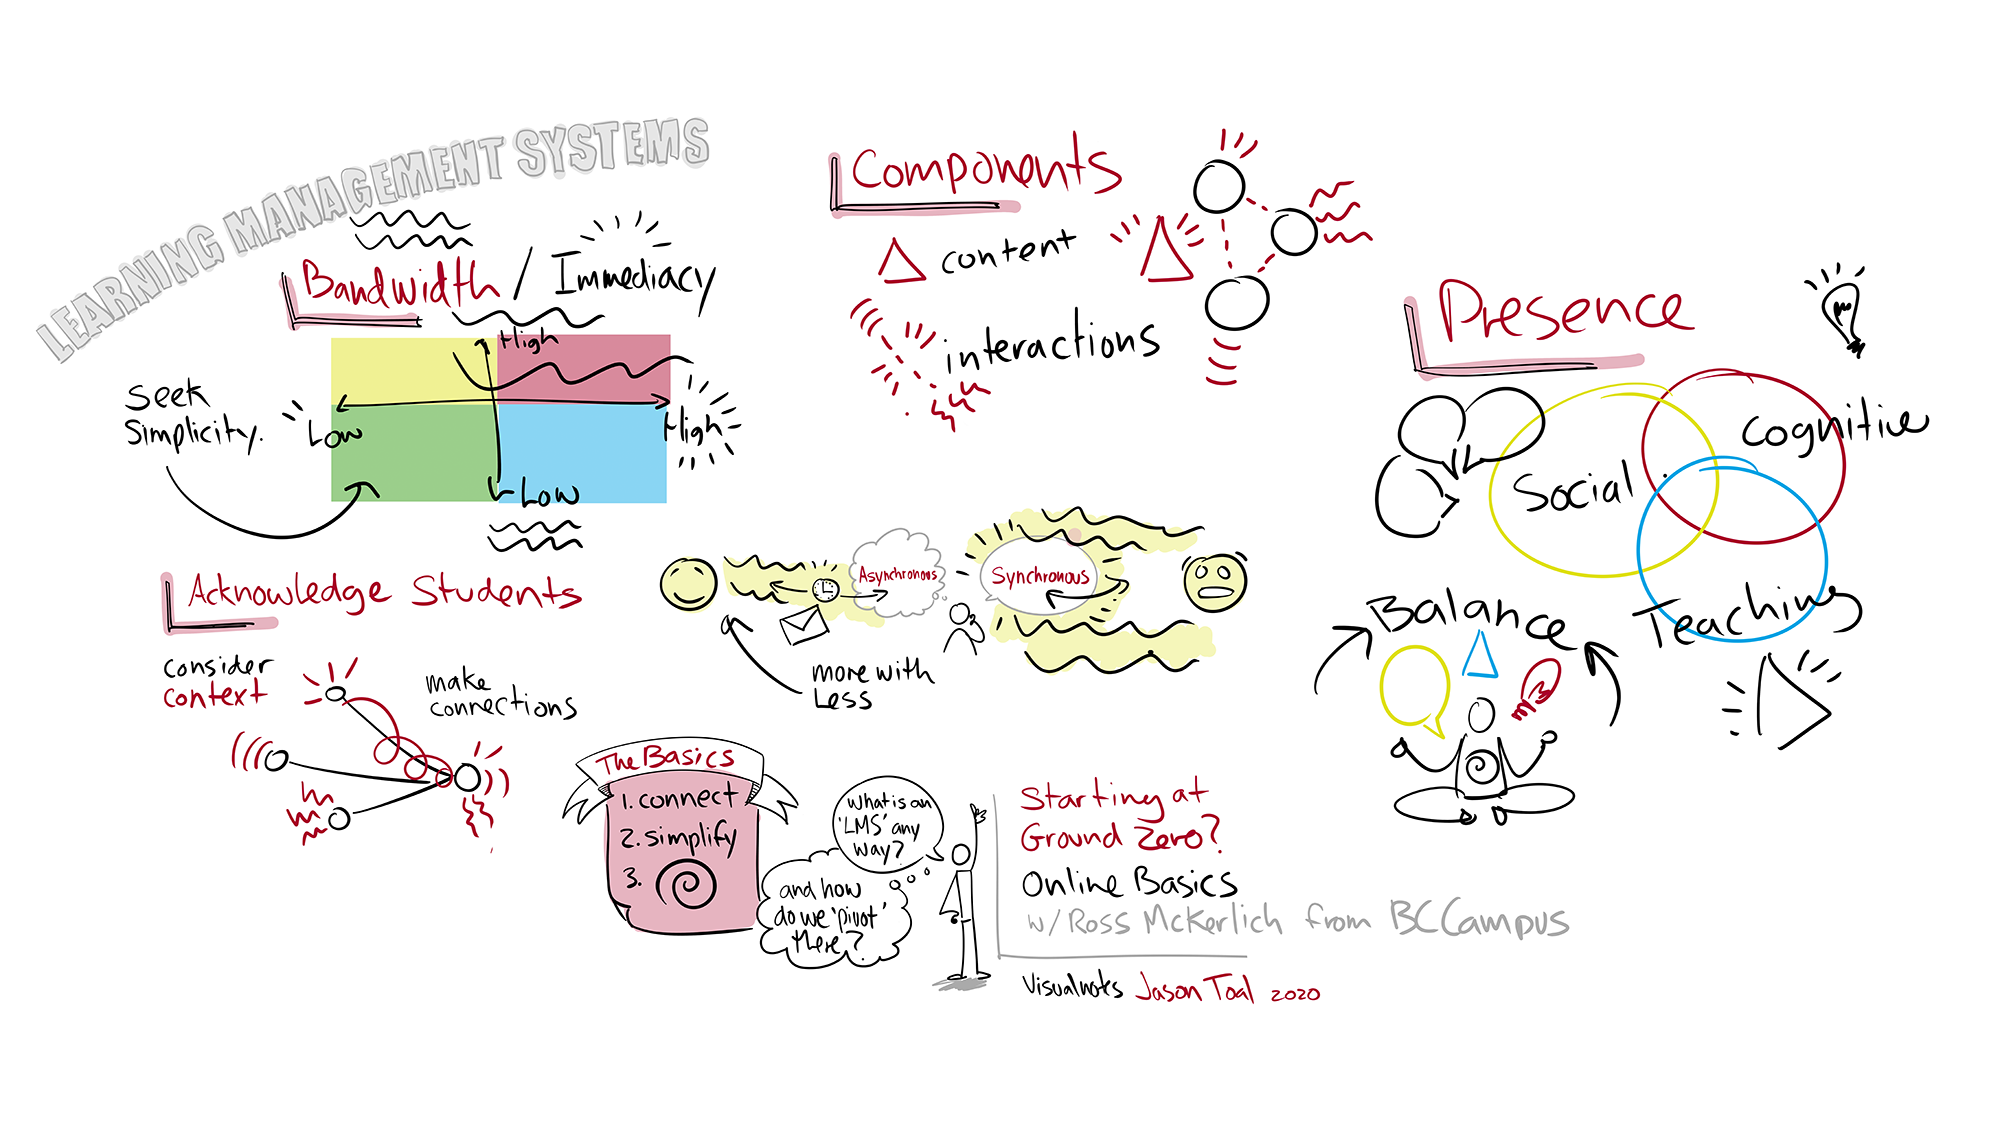 LEARNING MANAGEMENT SYSTEMS
Bandwidth / Immediacy
High
Seek
Simplicity.
Low
High
Low
Components
content
interactions
Presence
Social
Cognitive
Teaching
Balance
Acknowledge Students
consider
context
make
connections
Asynchronous
Synchronous
more with
Less
The Basics
1. connect
2. simplify
3.
What is an
'LMS' any
way?
and how
do we 'pivot'
there?
Starting at
Ground Zero?
Online Basics
w/ Ross McKerlich from BCCampus
Visualnotes Jason Toal 2020